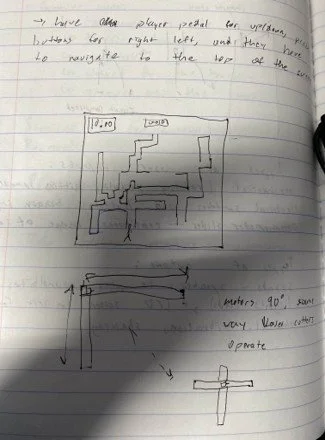 → have player pedal for up/down,
buttons for right left, and they have
to navigate to the top of the
motors 90°, same
way laser cutters
operate